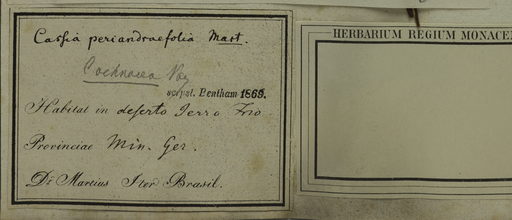 Cassia periandraefolia Mart.
Cochnacea
script. Bentham 1869.
Habitat in deserto Serro Frio
Provinciae Min. Ger.
Dr. Martius Iter Brasil.
HERBARIUM REGIUM MONACEN